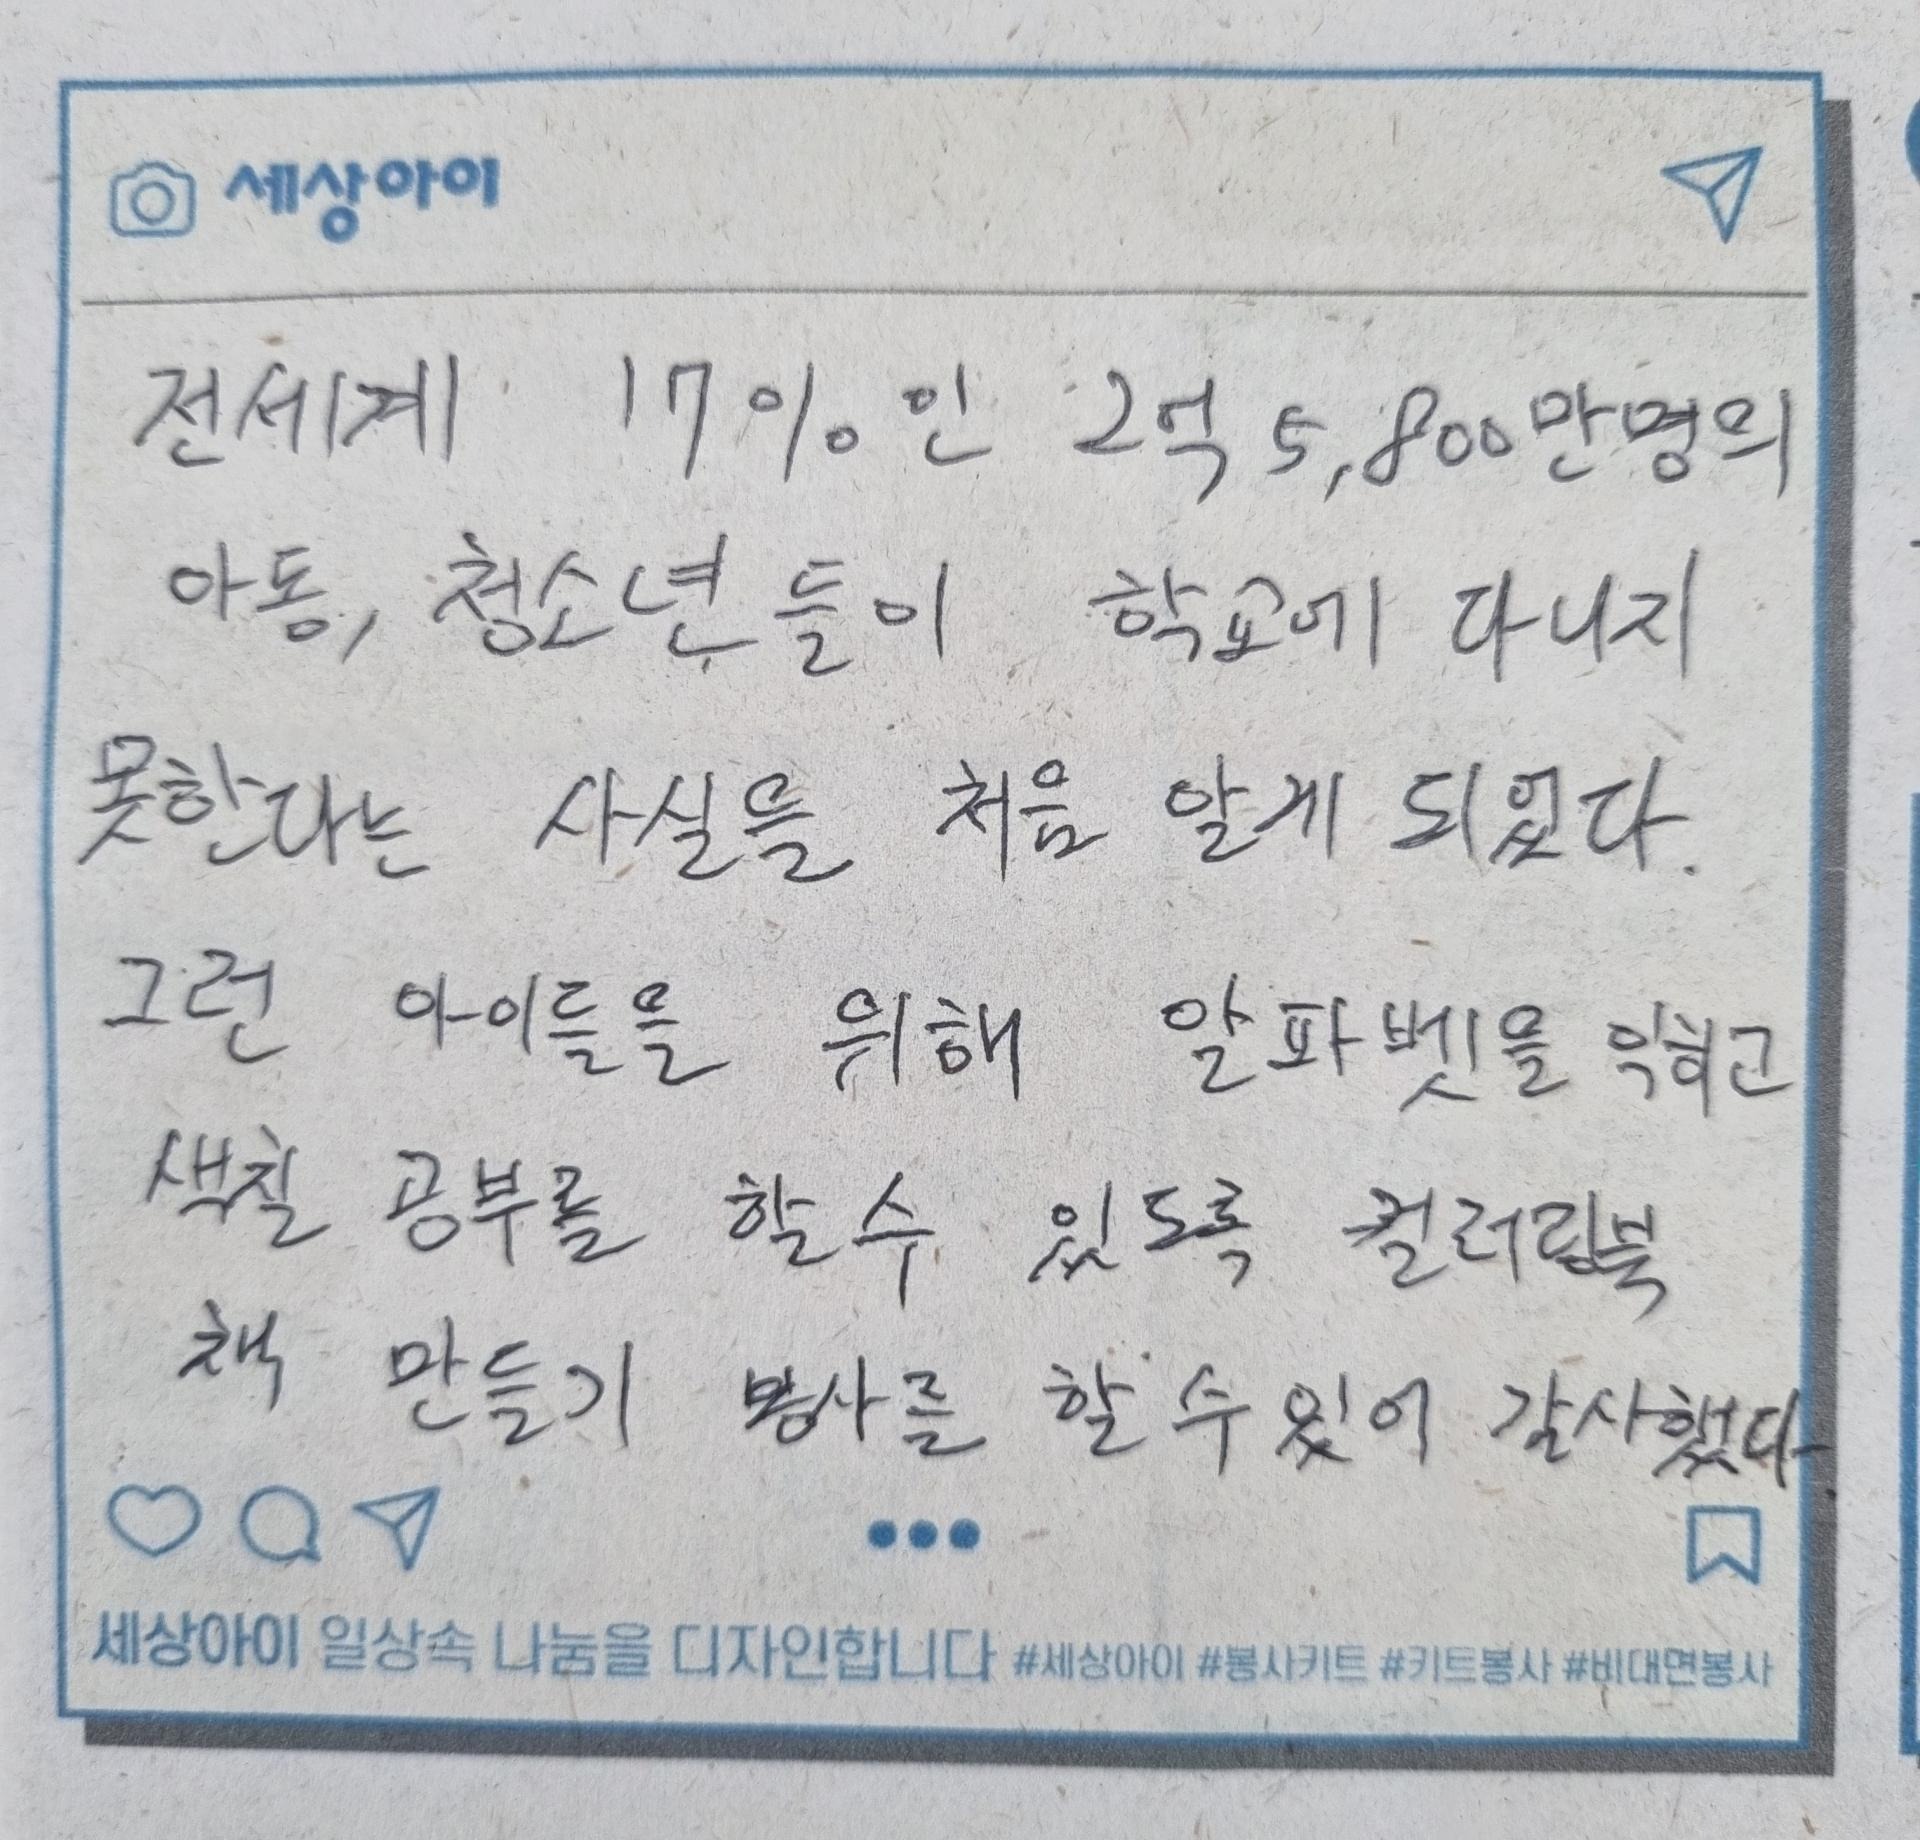 세상아이
전세계 17%인 2억 5,800만명의
아동, 청소년들이 학교에 다니지
못한다는 사실을 처음 알게 되었다.
그런 아이들을 위해 알파벳을 익히고
색칠 공부를 할 수 있도록 컬러링북
책 만들기 봉사를 할 수 있어 감사했다.
세상아이 일상속 나눔을 디자인합니다 #세상아이 #봉사키트 #키트봉사 #비대면봉사